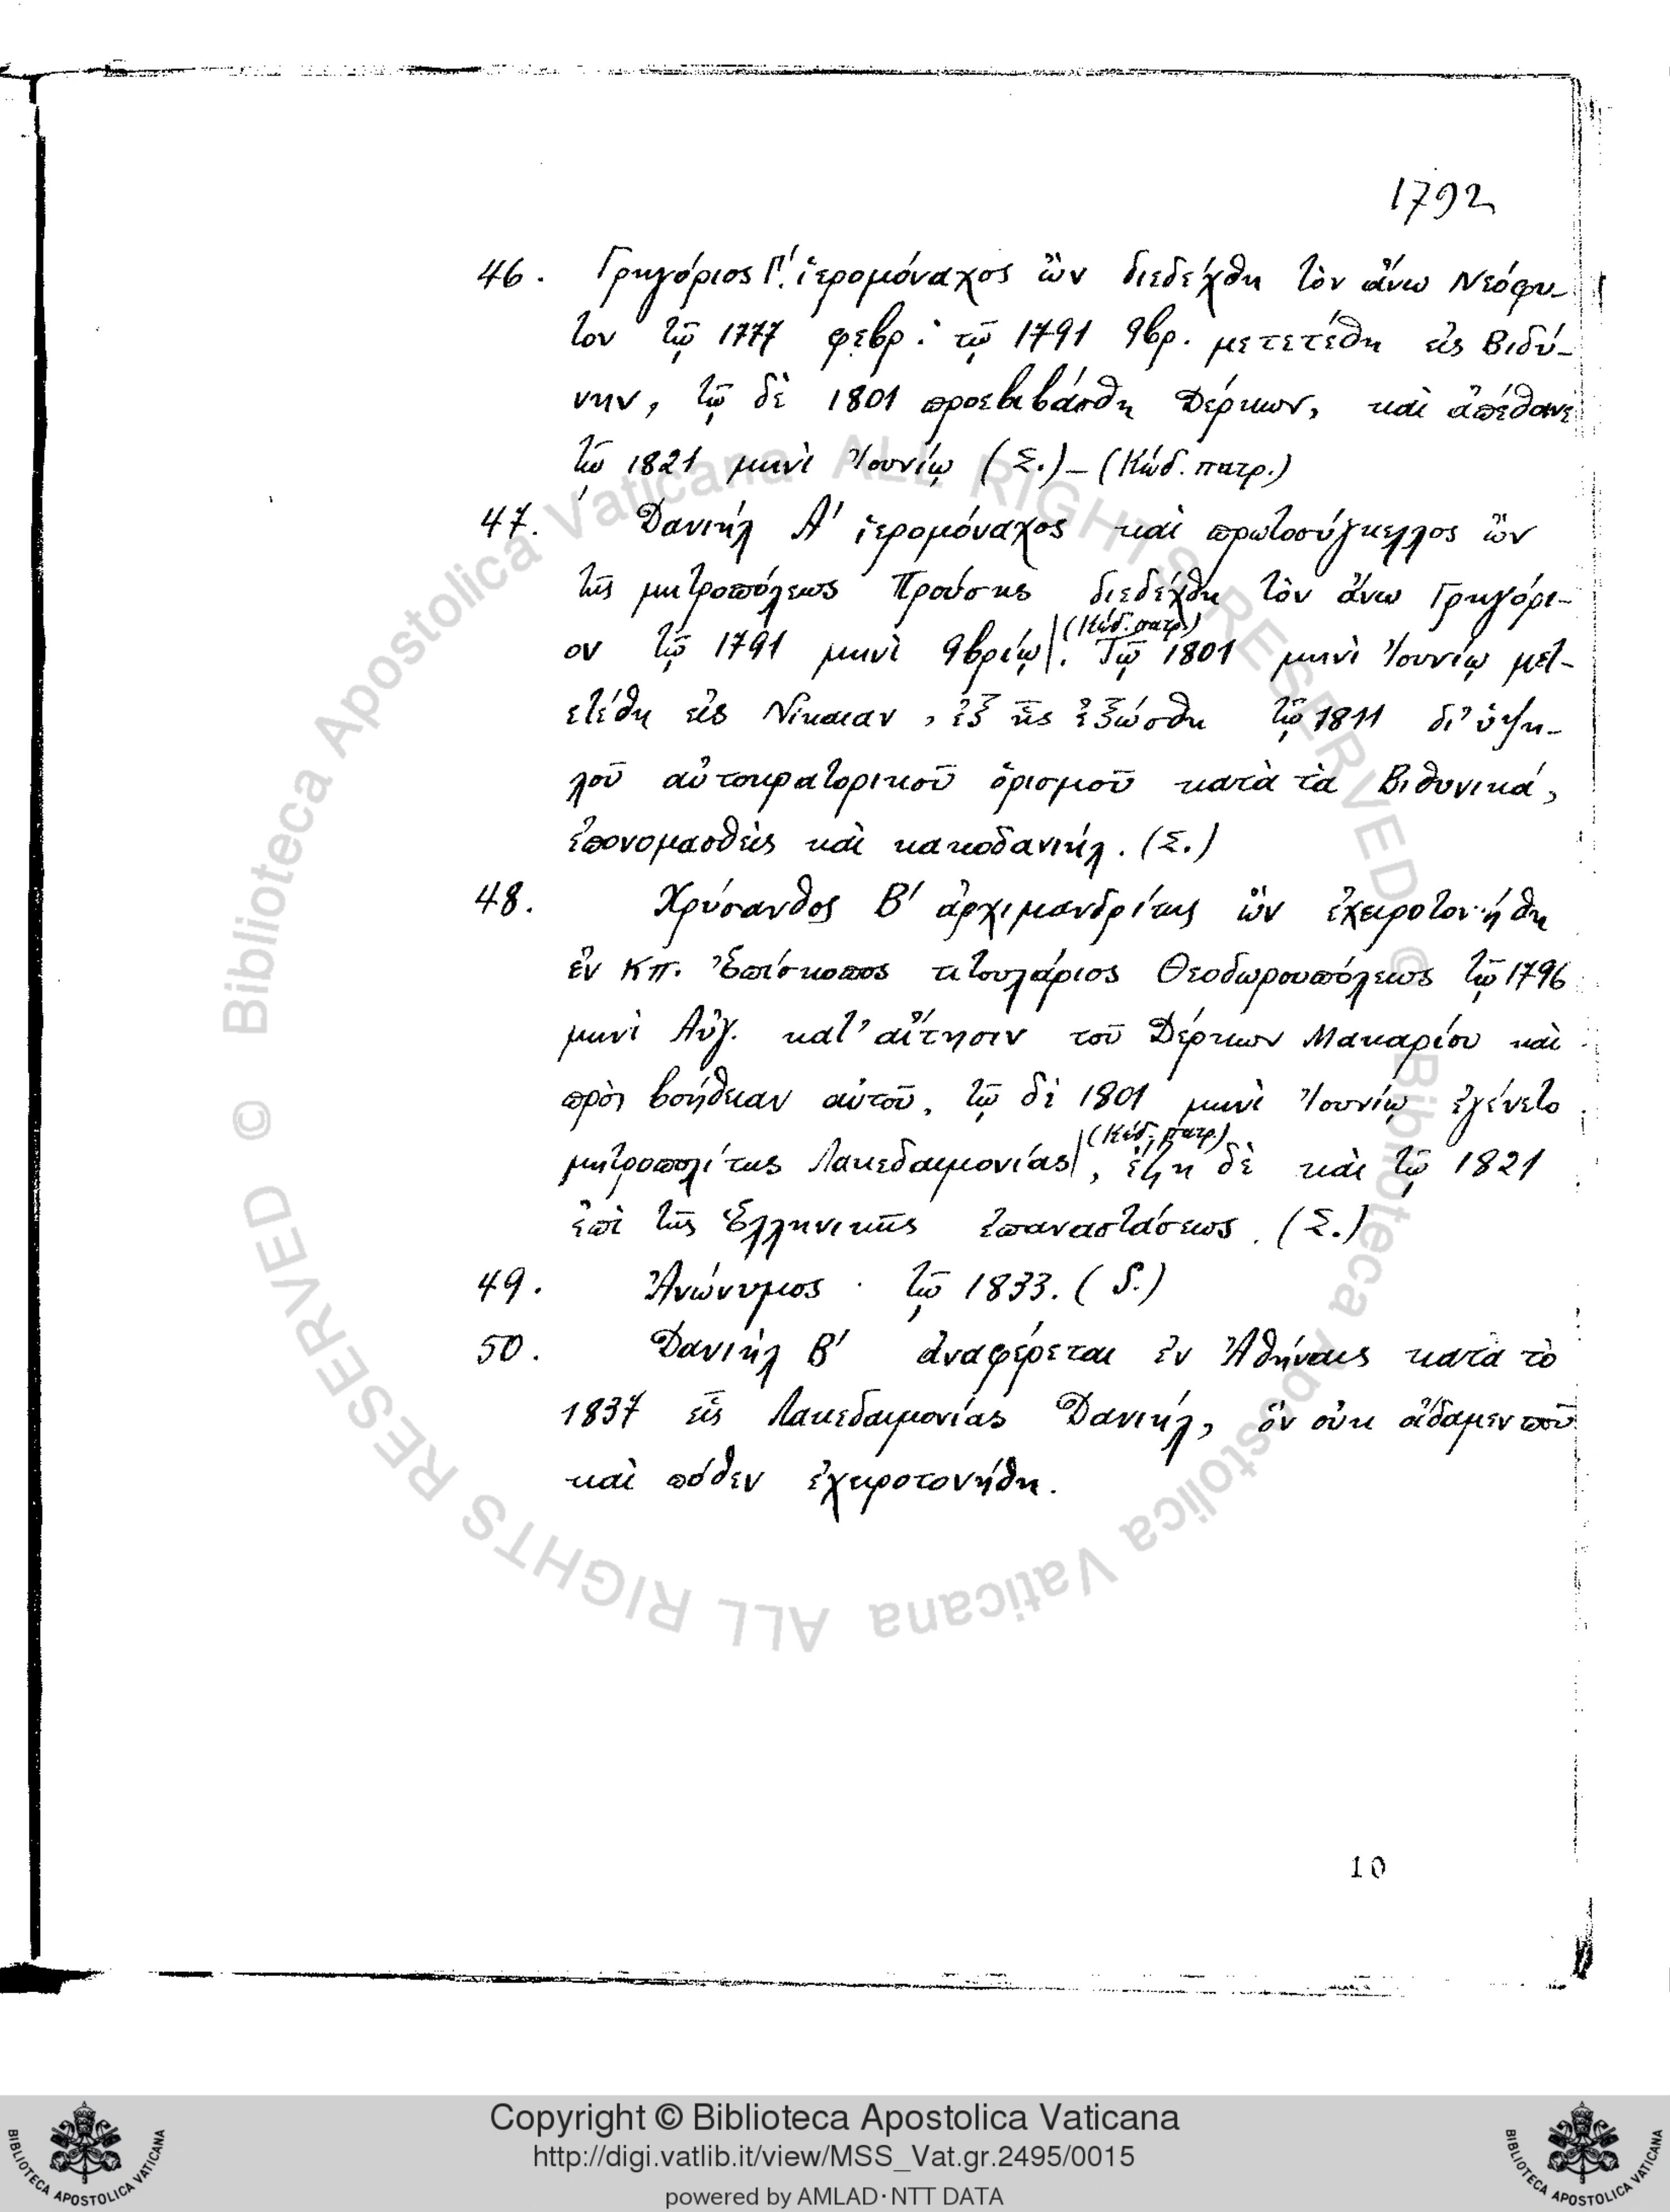 1792
46. Γρηγόριος Γ'. ἱερομόναχος ὢν διεδέχθη τὸν ἄνω Νεόφυ-
τον τῷ 1777 φεβρ: τῷ 1791 9βρ. μετετέθη εἰς Βιδύ-
νην, τῷ δὲ 1801 προεβιβάσθη Δέρκων, καὶ ἀπέθανε
τῷ 1821 μηνὶ Ἰουνίῳ (Σ.) – (Κώδ. πατρ.)
47. Δανιὴλ Α' ἱερομόναχος καὶ πρωτοσύγκελλος ὢν
τῆς μητροπόλεως Προύσης διεδέχθη τὸν ἄνω Γρηγόρι-
(Κώδ. πατρ.)
ον τῷ 1791 μηνὶ 9βρίῳ|. Τῷ 1801 μηνὶ Ἰουνίῳ μετ-
ετέθη εἰς Νίκαιαν, ἐξ ἧς ἐξώσθη τῷ 1811 δι' ὑψη-
λοῦ αὐτοκρατορικοῦ ὁρισμοῦ κατὰ τὰ Βιθυνικά,
ἐπονομασθεὶς καὶ κακοδανιήλ. (Σ.)
48. Χρύσανθος Β' ἀρχιμανδρίτης ὢν ἐχειροτονήθη
ἐν Κπ. Ἐπίσκοπος τιτουλάριος Θεοδωρουπόλεως τῷ 1796
μηνὶ Αὐγ. κατ' αἴτησιν τοῦ Δέρκων Μακαρίου καὶ
πρὸς βοήθειαν αὐτοῦ, τῷ δὲ 1801 μηνὶ Ἰουνίῳ ἐγένετο
(Κώδ. πατρ.)
μητροπολίτης Λακεδαιμονίας|, ἔζη δὲ καὶ τῷ 1821
ἐπὶ τῆς Ἑλληνικῆς ἐπαναστάσεως. (Σ.)
49. Ἀνώνυμος · τῷ 1833. (S.)
50. Δανιὴλ Β' ἀναφέρεται ἐν Ἀθήναις κατὰ τὸ
1837 εἷς Λακεδαιμονίας Δανιήλ, ὃν οὐκ οἴδαμεν ποῦ
καὶ πόθεν ἐχειροτονήθη.
10
© Biblioteca Apostolica Vaticana ALL RIGHTS RESERVED © Biblioteca Apostolica Vaticana ALL RIGHTS RESERVED
Copyright © Biblioteca Apostolica Vaticana
http://digi.vatlib.it/view/MSS_Vat.gr.2495/0015
powered by AMLAD·NTT DATA
BIBLIOTECA APOSTOLICA VATICANA
BIBLIOTECA APOSTOLICA VATICANA